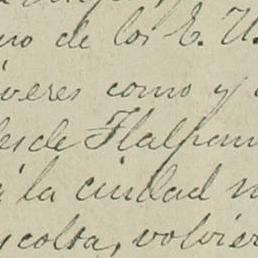 no de los E. U.
íveres como y
desde Tlalpam
á la ciudad
scolta, volvier